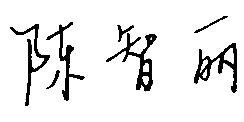 陈智丽